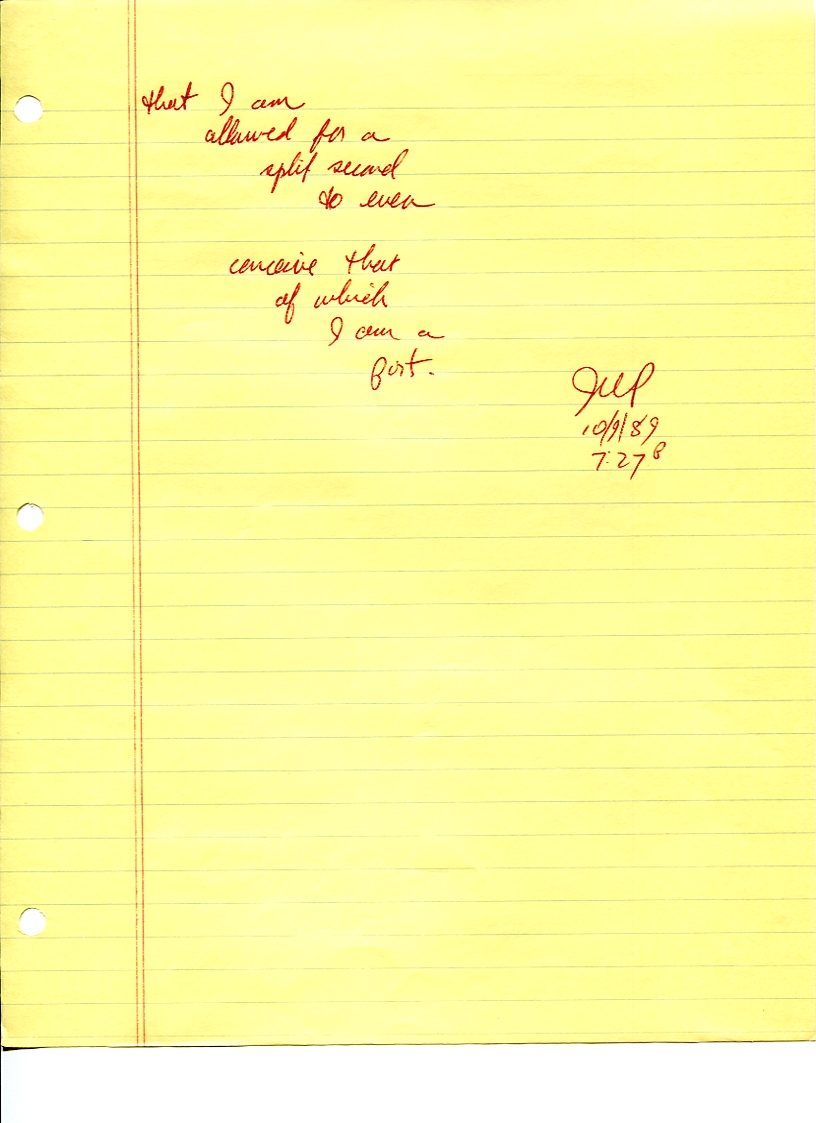 that I am
allowed for a
split second
to even
conceive that
of which
I am a
part.
10/9/89
7:27 P